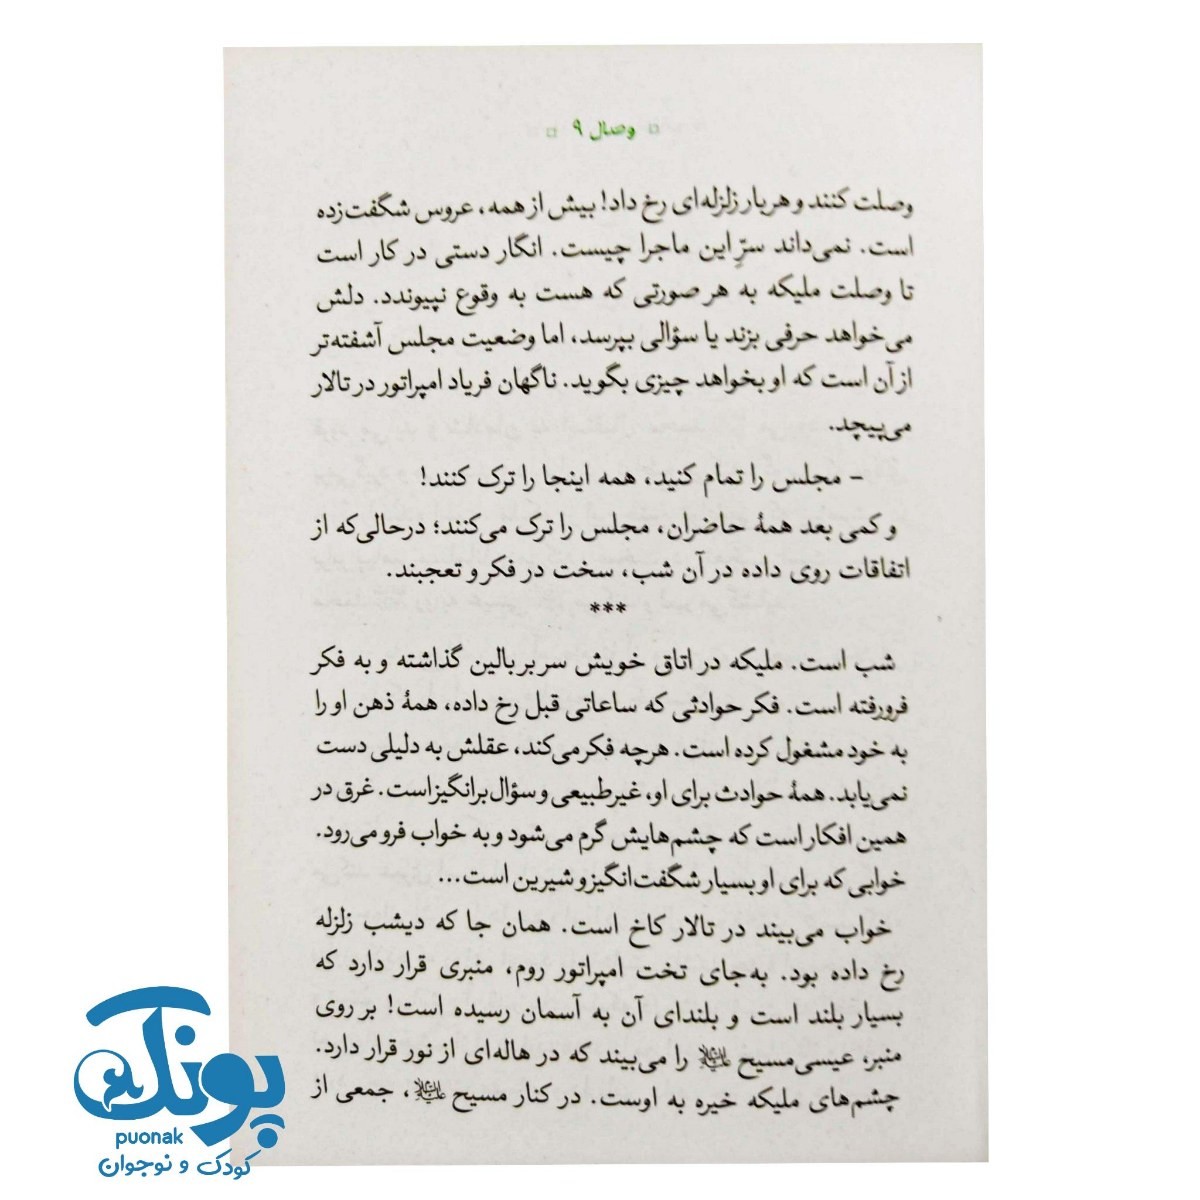 وصال ۹
وصلت کنند و هر بار زلزله‌ای رخ داد! بیش از همه، عروس شگفت‌زده
است. نمی‌داند سرِّ این ماجرا چیست. انگار دستی در کار است
تا وصلت ملیکه به هر صورتی که هست به وقوع نپیوندد. دلش
می‌خواهد حرفی بزند یا سؤالی بپرسد، اما وضعیت مجلس آشفته‌تر
از آن است که او بخواهد چیزی بگوید. ناگهان فریاد امپراتور در تالار
می‌پیچد.
– مجلس را تمام کنید، همه اینجا را ترک کنند!
و کمی بعد همهٔ حاضران، مجلس را ترک می‌کنند؛ درحالی‌که از
اتفاقات روی داده در آن شب، سخت در فکر و تعجبند.
***
شب است. ملیکه در اتاق خویش سر بر بالین گذاشته و به فکر
فرورفته است. فکر حوادثی که ساعاتی قبل رخ داده، همهٔ ذهن او را
به خود مشغول کرده است. هرچه فکر می‌کند، عقلش به دلیلی دست
نمی‌یابد. همهٔ حوادث برای او، غیرطبیعی و سؤال‌برانگیز است. غرق در
همین افکار است که چشم‌هایش گرم می‌شود و به خواب فرو می‌رود.
خوابی که برای او بسیار شگفت‌انگیز و شیرین است...
خواب می‌بیند در تالار کاخ است. همان جا که دیشب زلزله
رخ داده بود. به‌جای تخت امپراتور روم، منبری قرار دارد که
بسیار بلند است و بلندای آن به آسمان رسیده است! بر روی
منبر، عیسی‌مسیح علیه‌السلام را می‌بیند که در هاله‌ای از نور قرار دارد.
چشم‌های ملیکه خیره به اوست. در کنار مسیح علیه‌السلام، جمعی از
پونک
puonak
کودک و نوجوان